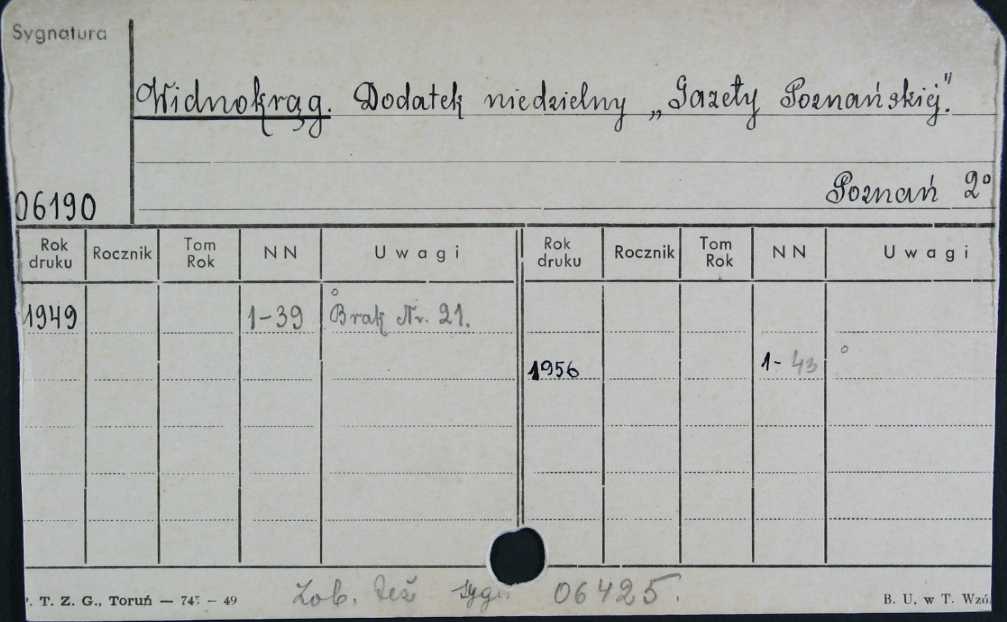 Sygnatura
Widnokrąg. Dodatek niedzielny „Gazety Poznańskiej."
Poznań 2°
06190
Rok druku Rocznik Tom Rok NN Uwagi Rok druku Rocznik Tom Rok NN Uwagi
1949 1-39 Brak Nr. 21.
1956 1-43
Zob. też sygn. 06425.
T. Z. G., Toruń — 745 — 49 B. U. w T. Wzó